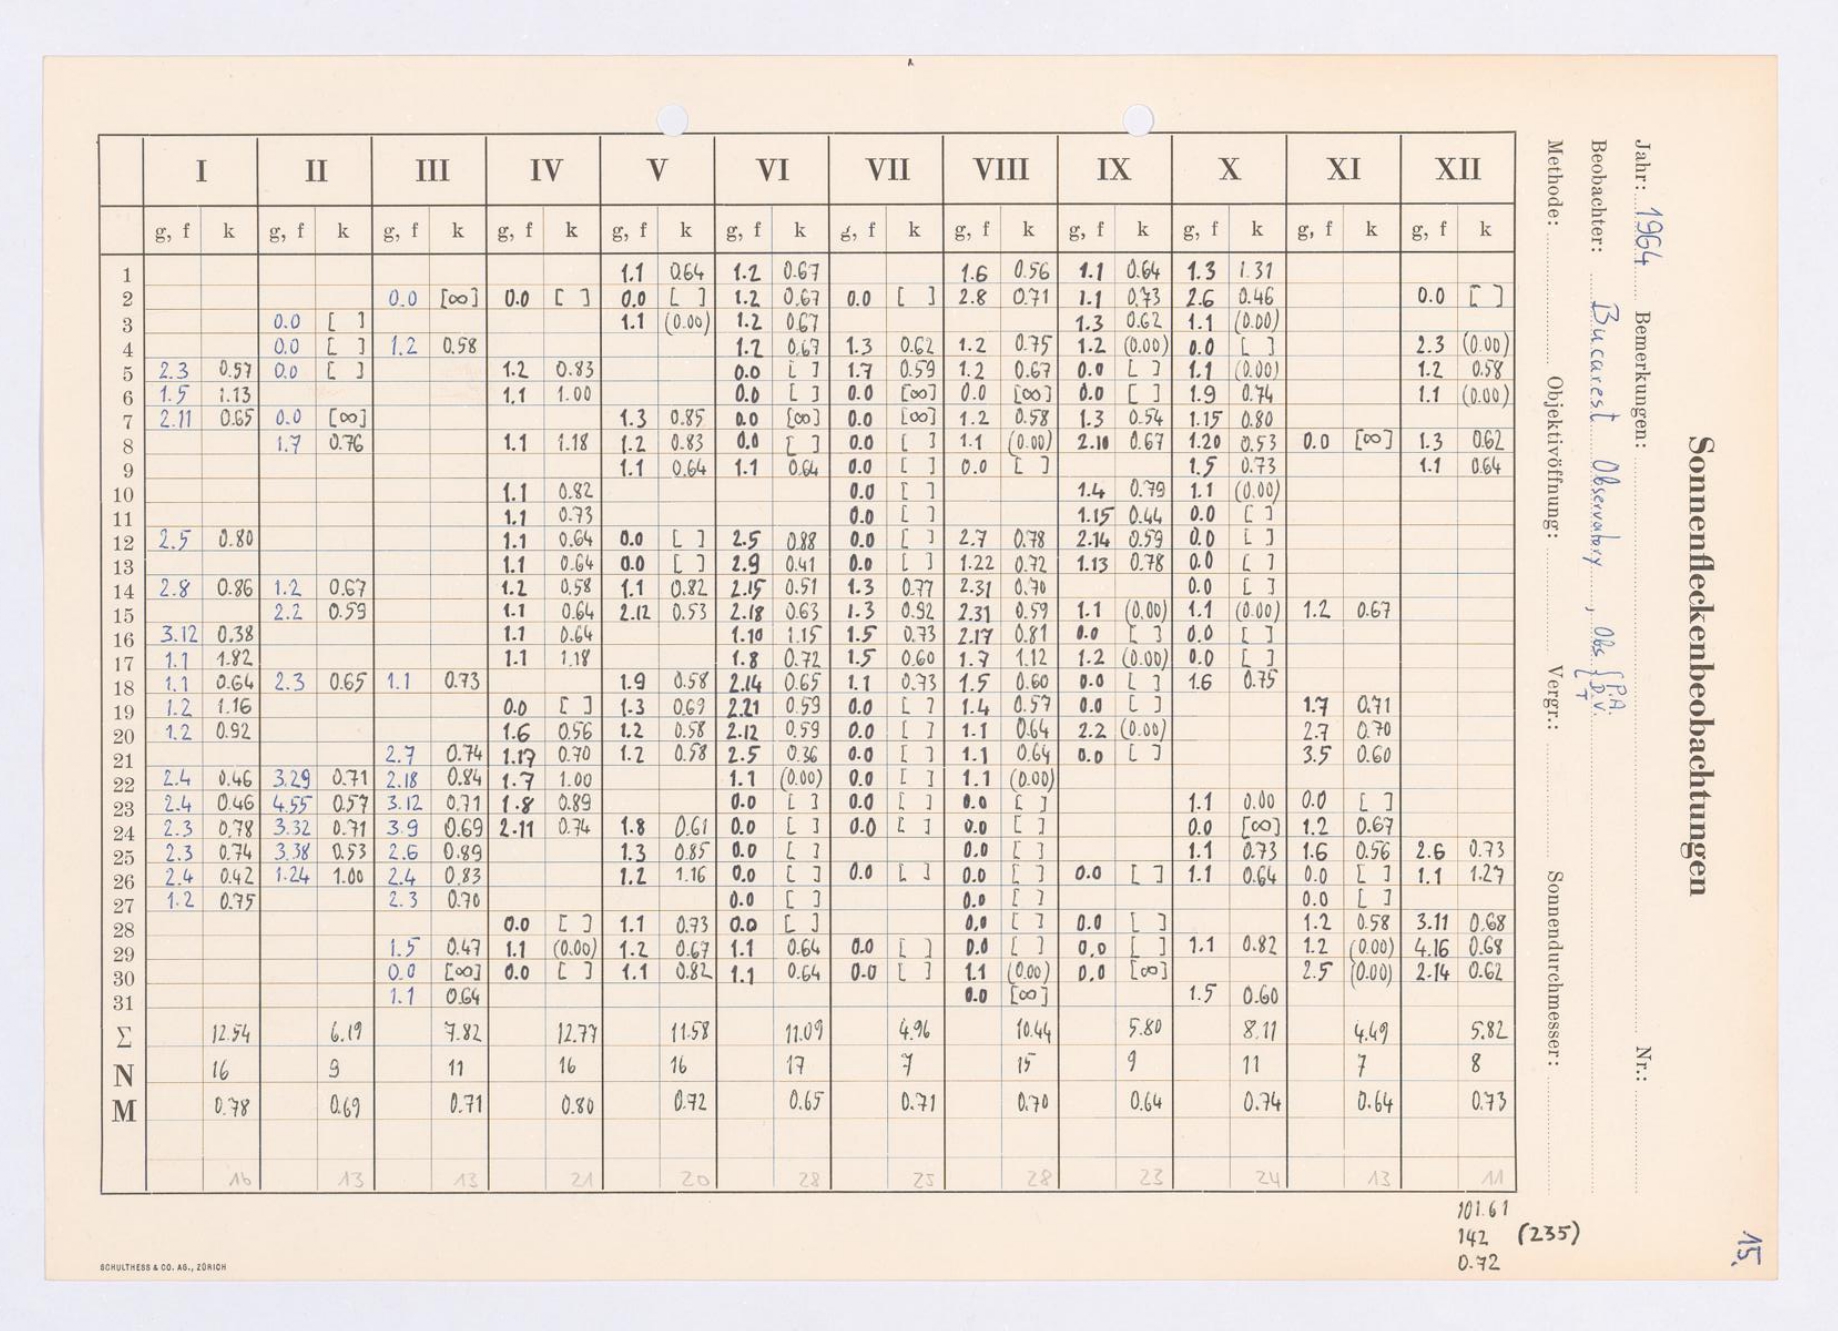 Sonnenfleckenbeobachtungen
Jahr: 1964 Bemerkungen: Nr.:
Beobachter: Bucarest Observatory, Obs. { P.A. D.V. T
Methode: Objektivöffnung: Vergr.: Sonnendurchmesser:
15.
I II III IV V VI VII VIII IX X XI XII
g, f k g, f k g, f k g, f k g, f k g, f k g, f k g, f k g, f k g, f k g, f k g, f k
1 1.1 0.64 1.2 0.67 1.6 0.56 1.1 0.64 1.3 1.31
2 0.0 [∞] 0.0 [ ] 0.0 [ ] 1.2 0.67 0.0 [ ] 2.8 0.71 1.1 0.73 2.6 0.46 0.0 [ ]
3 0.0 [ ] 1.1 (0.00) 1.2 0.67 1.3 0.62 1.1 (0.00)
4 0.0 [ ] 1.2 0.58 1.2 0.67 1.3 0.62 1.2 0.75 1.2 (0.00) 0.0 [ ] 2.3 (0.00)
5 2.3 0.57 0.0 [ ] 1.2 0.83 0.0 [ ] 1.7 0.59 1.2 0.67 0.0 [ ] 1.1 (0.00) 1.2 0.58
6 1.5 1.13 1.1 1.00 0.0 [ ] 0.0 [∞] 0.0 [∞] 0.0 [ ] 1.9 0.74 1.1 (0.00)
7 2.11 0.65 0.0 [∞] 1.3 0.85 0.0 [∞] 0.0 [∞] 1.2 0.58 1.3 0.54 1.15 0.80
8 1.7 0.76 1.1 1.18 1.2 0.83 0.0 [ ] 0.0 [ ] 1.1 (0.00) 2.10 0.67 1.20 0.53 0.0 [∞] 1.3 0.62
9 1.1 0.64 1.1 0.64 0.0 [ ] 0.0 [ ] 1.5 0.73 1.1 0.64
10 1.1 0.82 0.0 [ ] 1.4 0.79 1.1 (0.00)
11 1.1 0.73 0.0 [ ] 1.15 0.44 0.0 [ ]
12 2.5 0.80 1.1 0.64 0.0 [ ] 2.5 0.88 0.0 [ ] 2.7 0.78 2.14 0.59 0.0 [ ]
13 1.1 0.64 0.0 [ ] 2.9 0.41 0.0 [ ] 1.22 0.72 1.13 0.78 0.0 [ ]
14 2.8 0.86 1.2 0.67 1.2 0.58 1.1 0.82 2.15 0.51 1.3 0.77 2.31 0.70 0.0 [ ]
15 2.2 0.59 1.1 0.64 2.12 0.53 2.18 0.63 1.3 0.92 2.31 0.59 1.1 (0.00) 1.1 (0.00) 1.2 0.67
16 3.12 0.38 1.1 0.64 1.10 1.15 1.5 0.73 2.17 0.81 0.0 [ ] 0.0 [ ]
17 1.1 1.82 1.1 1.18 1.8 0.72 1.5 0.60 1.7 1.12 1.2 (0.00) 0.0 [ ]
18 1.1 0.64 2.3 0.65 1.1 0.73 1.9 0.58 2.14 0.65 1.1 0.73 1.5 0.60 0.0 [ ] 1.6 0.75
19 1.2 1.16 0.0 [ ] 1.3 0.69 2.21 0.59 0.0 [ ] 1.4 0.57 0.0 [ ] 1.7 0.71
20 1.2 0.92 1.6 0.56 1.2 0.58 2.12 0.59 0.0 [ ] 1.1 0.64 2.2 (0.00) 2.7 0.70
21 2.7 0.74 1.17 0.70 1.2 0.58 2.5 0.36 0.0 [ ] 1.1 0.64 0.0 [ ] 3.5 0.60
22 2.4 0.46 3.29 0.71 2.18 0.84 1.7 1.00 1.1 (0.00) 0.0 [ ] 1.1 (0.00)
23 2.4 0.46 4.55 0.57 3.12 0.71 1.8 0.89 0.0 [ ] 0.0 [ ] 0.0 [ ] 1.1 0.00 0.0 [ ]
24 2.3 0.78 3.32 0.71 3.9 0.69 2.11 0.74 1.8 0.61 0.0 [ ] 0.0 [ ] 0.0 [ ] 0.0 [∞] 1.2 0.67
25 2.3 0.74 3.38 0.53 2.6 0.89 1.3 0.85 0.0 [ ] 0.0 [ ] 1.1 0.73 1.6 0.56 2.6 0.73
26 2.4 0.42 1.24 1.00 2.4 0.83 1.2 1.16 0.0 [ ] 0.0 [ ] 0.0 [ ] 0.0 [ ] 1.1 0.64 0.0 [ ] 1.1 1.27
27 1.2 0.75 2.3 0.70 0.0 [ ] 0.0 [ ] 0.0 [ ]
28 0.0 [ ] 1.1 0.73 0.0 [ ] 0.0 [ ] 0.0 [ ] 1.2 0.58 3.11 0.68
29 1.5 0.47 1.1 (0.00) 1.2 0.67 1.1 0.64 0.0 [ ] 0.0 [ ] 0.0 [ ] 1.1 0.82 1.2 (0.00) 4.16 0.68
30 0.0 [∞] 0.0 [ ] 1.1 0.82 1.1 0.64 0.0 [ ] 1.1 (0.00) 0.0 [∞] 2.5 (0.00) 2.14 0.62
31 1.1 0.64 0.0 [∞] 1.5 0.60
Σ 12.54 6.19 7.82 12.77 11.58 11.09 4.96 10.44 5.80 8.11 4.49 5.82
N 16 9 11 16 16 17 7 15 9 11 7 8
M 0.78 0.69 0.71 0.80 0.72 0.65 0.71 0.70 0.64 0.74 0.64 0.73
16 13 13 21 20 28 25 28 23 24 13 11
101.61
142 (235)
0.72
SCHULTHESS & CO. AG., ZÜRICH